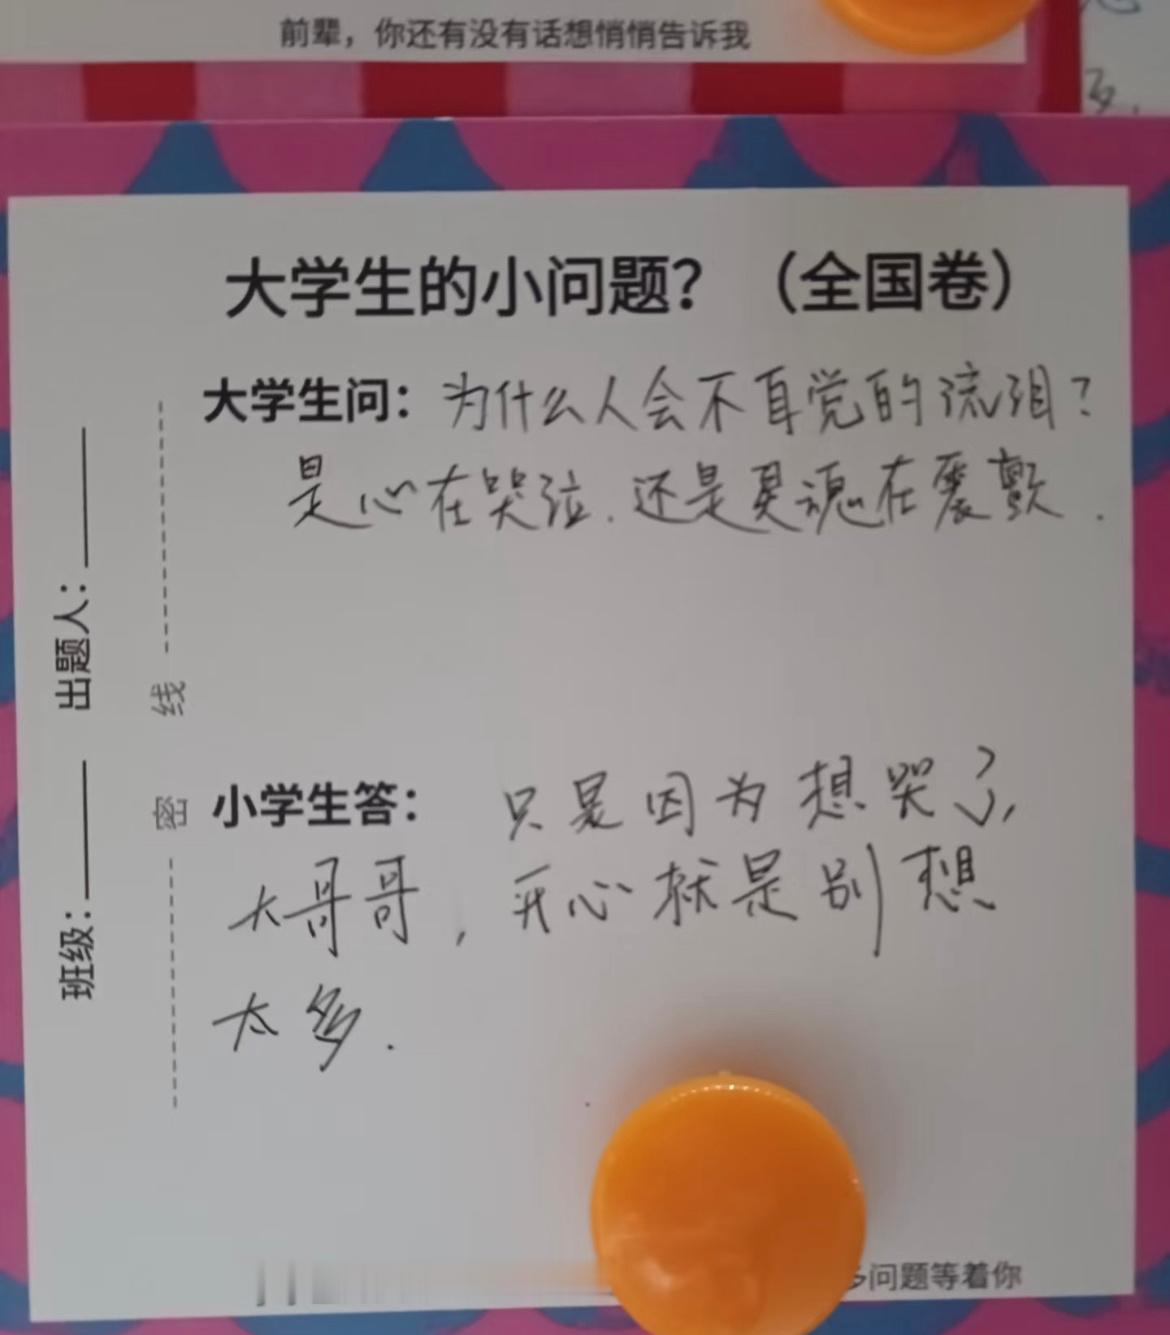 前辈，你还有没有话想悄悄告诉我
大学生的小问题？（全国卷）
大学生问：为什么人会不自觉的流泪？
是心在哭泣.还是灵魂在震颤.
小学生答：只是因为想哭了,
大哥哥，开心就是别想
太多.
出题人：
班级：
线
密
问题等着你